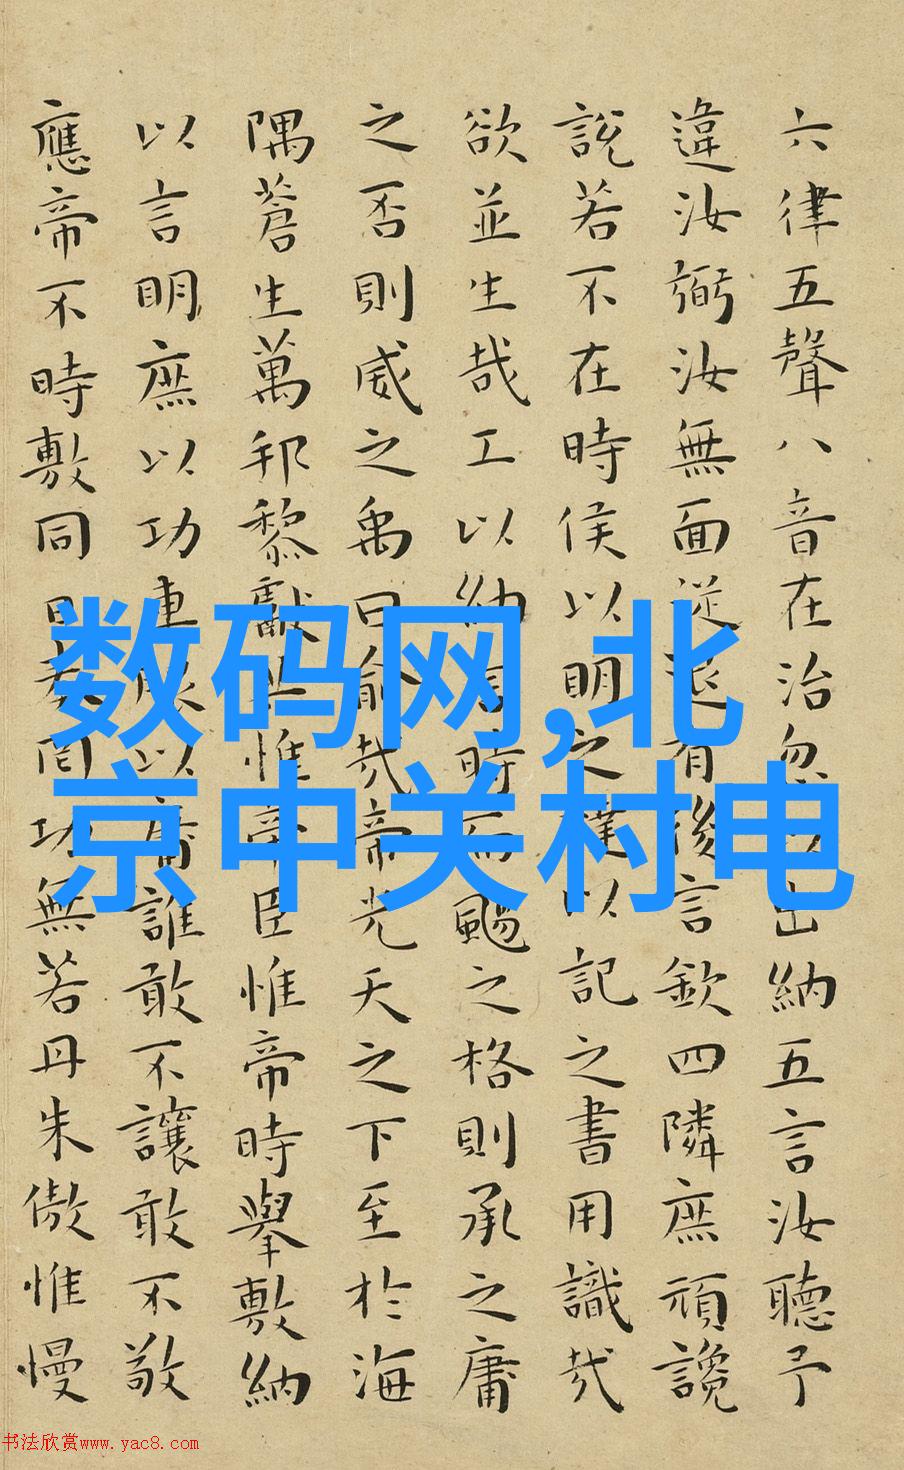 六律五聲八音在治忽以出納五言汝聽予
違汝弼汝無面從退有後言欽四隣庶頑讒
說若不在時侯以明之撻以記之書用識哉
欲並生哉工以納言時而颺之格則承之庸
之否則威之禹曰俞哉帝光天之下至於海
隅蒼生萬邦黎獻共惟帝臣惟帝時舉敷納
以言明庶以功車服以庸誰敢不讓敢不敬
應帝不時敷同日奏罔功無若丹朱傲惟慢
数码网,北
京中关村电
书法欣赏www.yac8.com